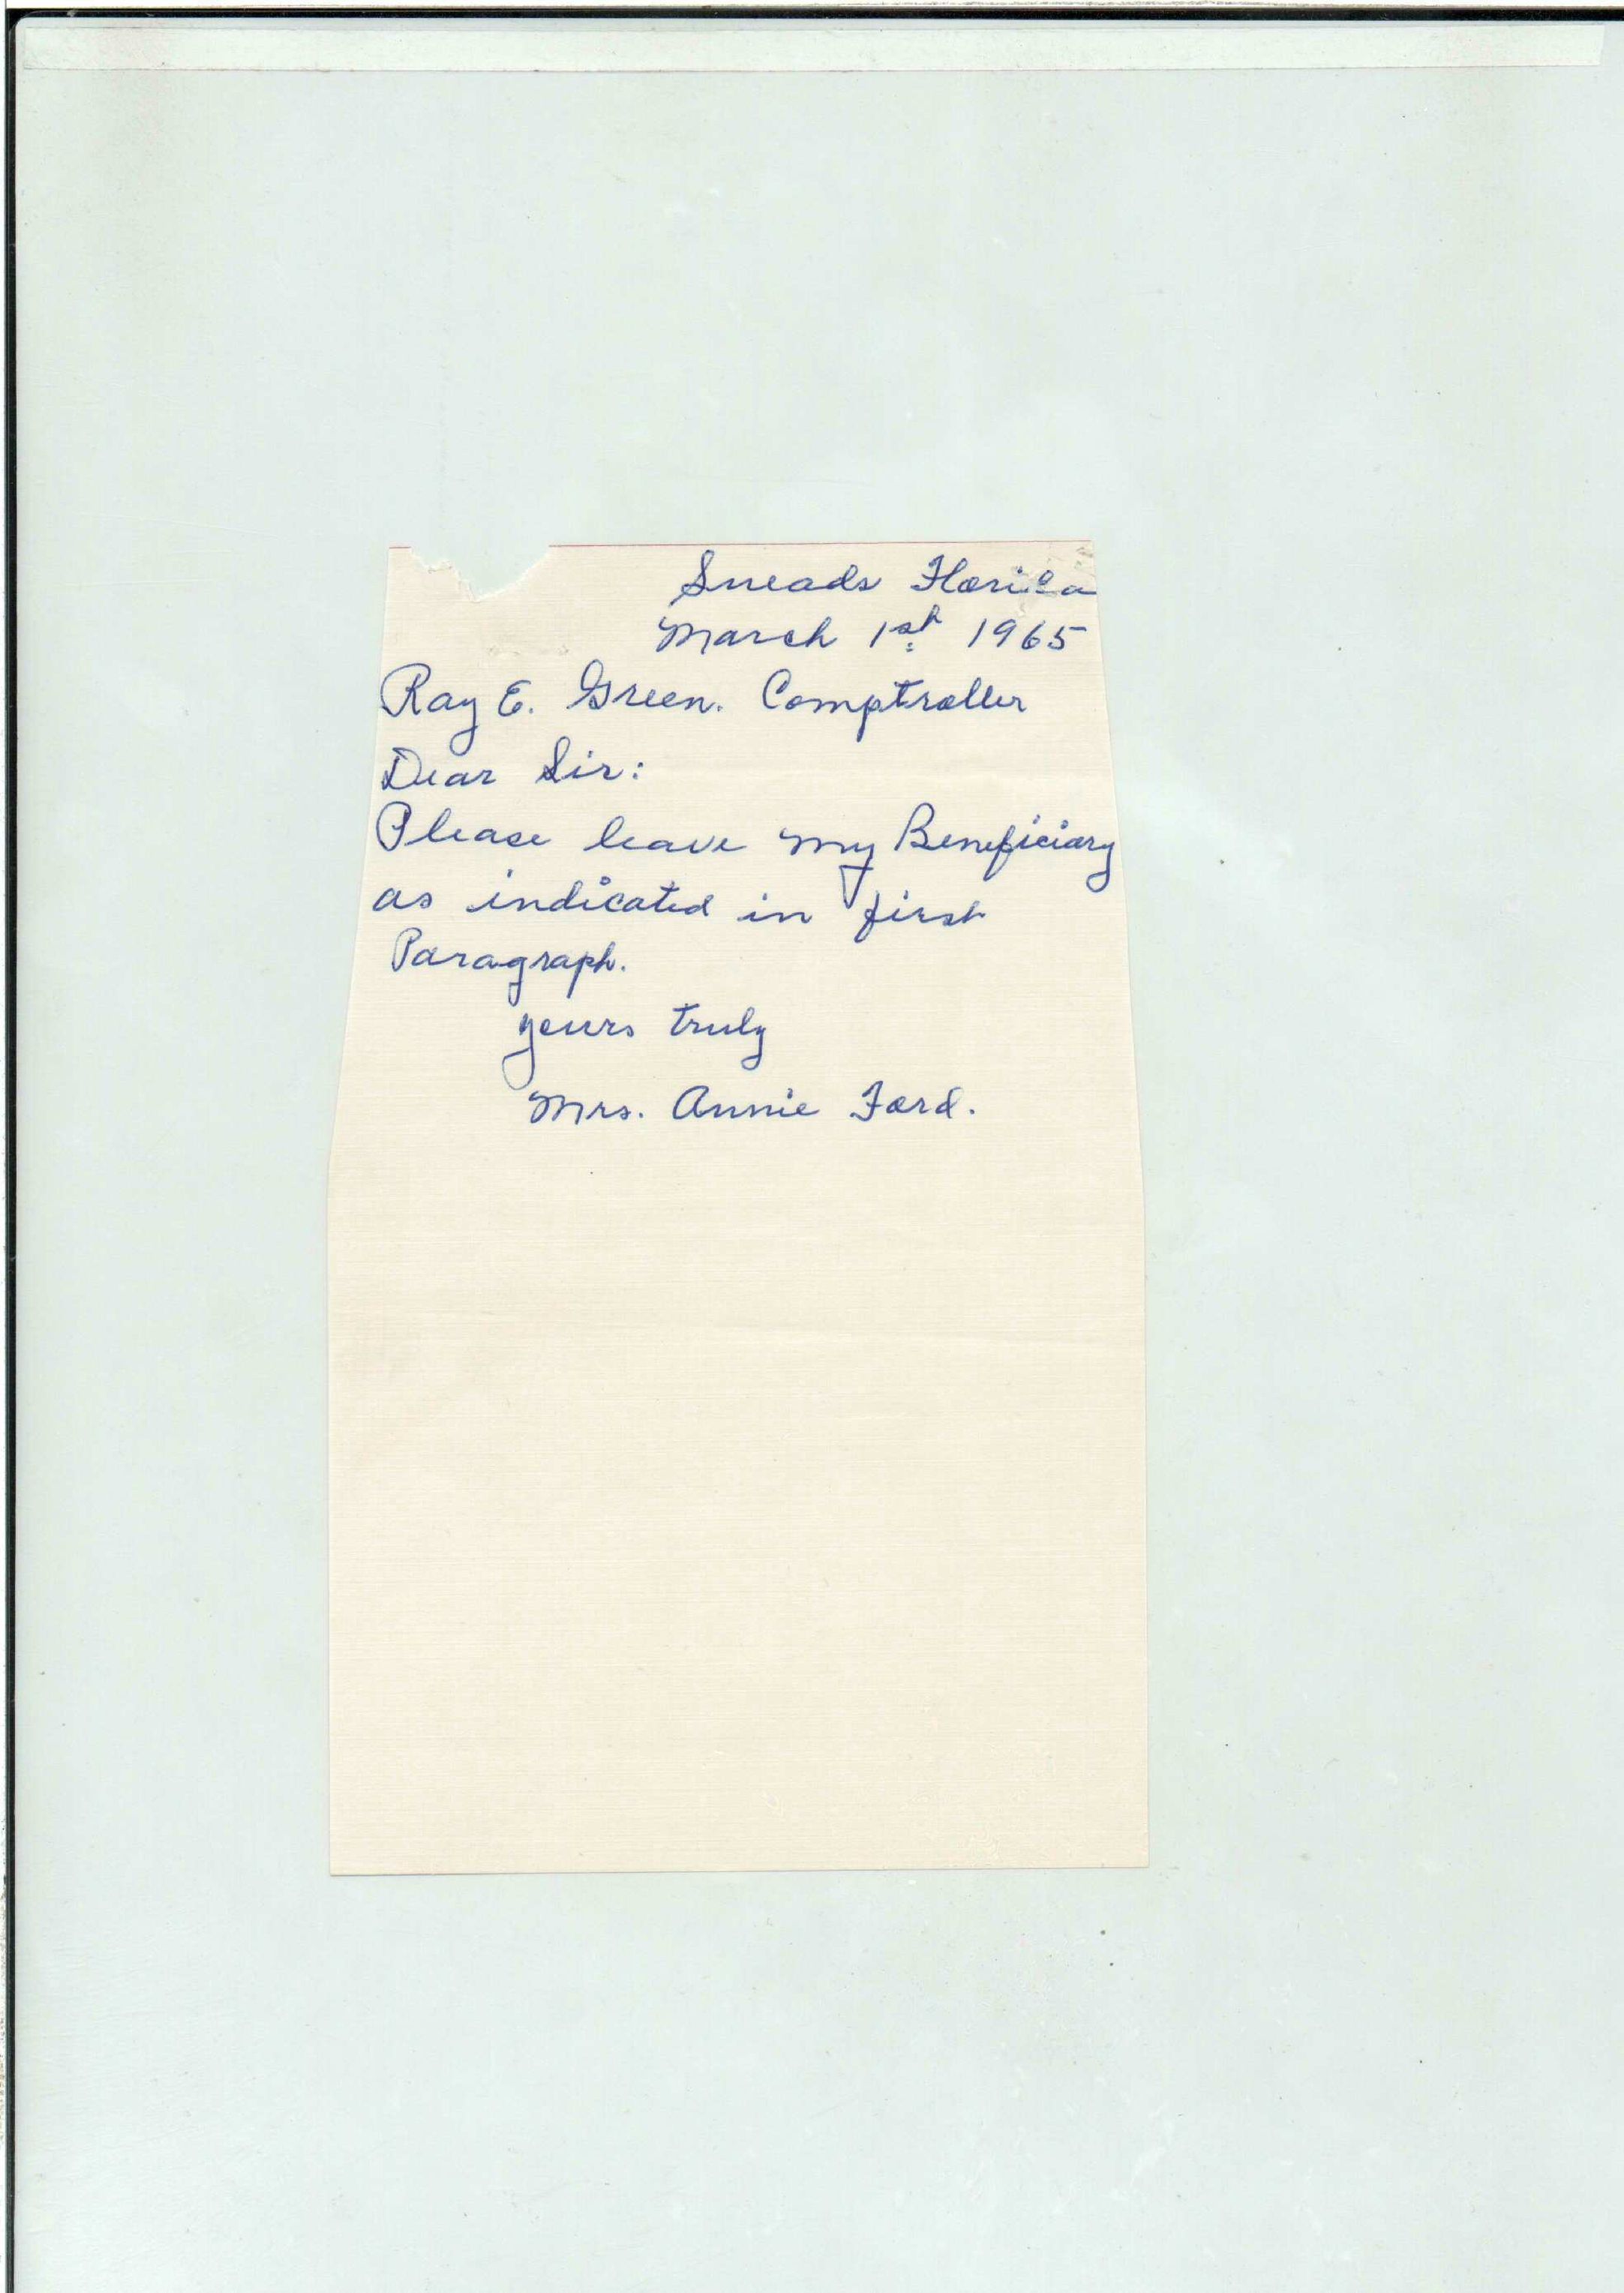 Sneads Florida
March 1st 1965
Ray E. Green. Comptroller
Dear Sir:
Please leave my Beneficiary
as indicated in first
Paragraph.
yours truly
Mrs. Annie Ford.